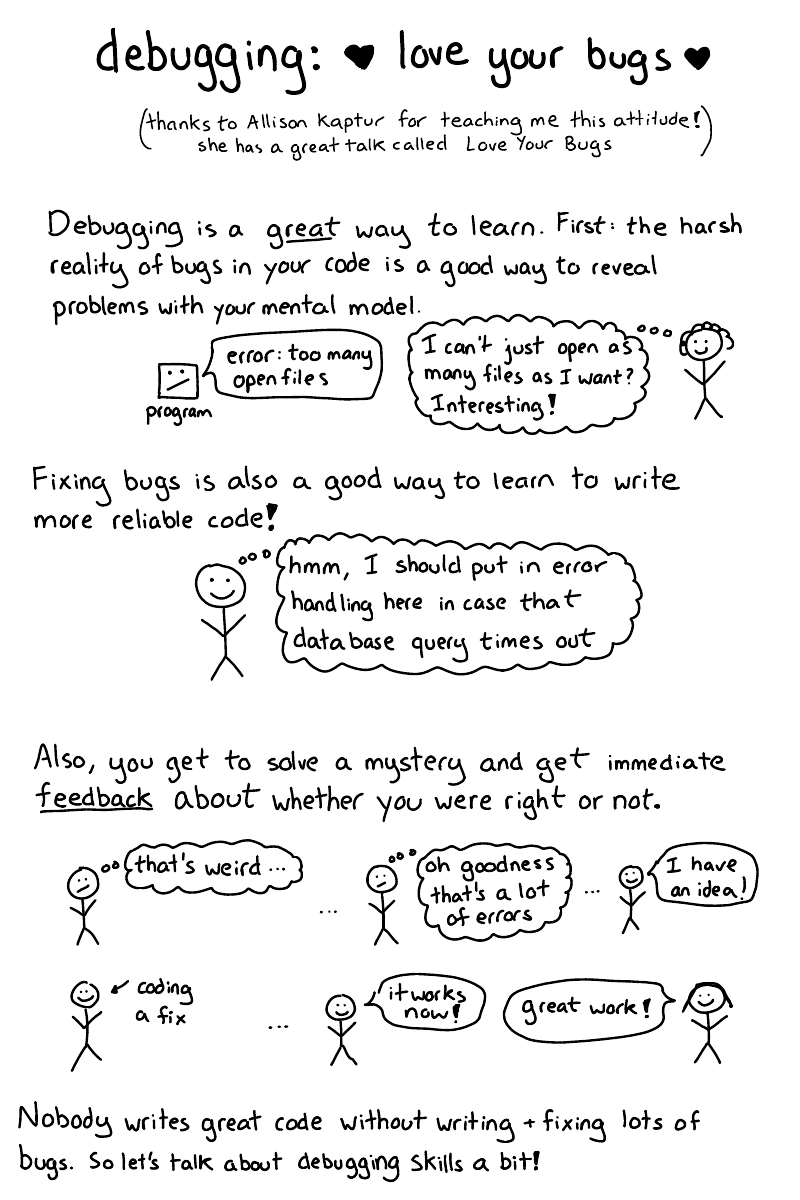 debugging: ♥ love your bugs ♥
(thanks to Allison Kaptur for teaching me this attitude!
she has a great talk called Love Your Bugs)
Debugging is a great way to learn. First: the harsh
reality of bugs in your code is a good way to reveal
problems with your mental model.
error: too many
open files
program
I can't just open as
many files as I want?
Interesting!
Fixing bugs is also a good way to learn to write
more reliable code!
hmm, I should put in error
handling here in case that
database query times out
Also, you get to solve a mystery and get immediate
feedback about whether you were right or not.
that's weird ...
...
oh goodness
that's a lot
of errors
...
I have
an idea!
coding
a fix
...
it works
now!
great work!
Nobody writes great code without writing + fixing lots of
bugs. So let's talk about debugging skills a bit!